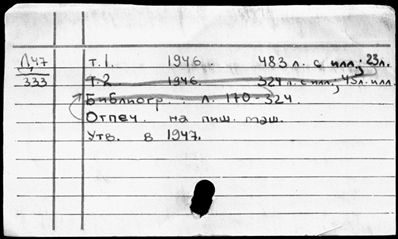 Л47 т.1. 1946. 483 л. с илл.; 23л.
333 т.2 1946. 324 л. с илл., 45л. илл.
Библиогр.: л. 170-324.
Отпеч. на пиш. маш.
Утв. в 1947.